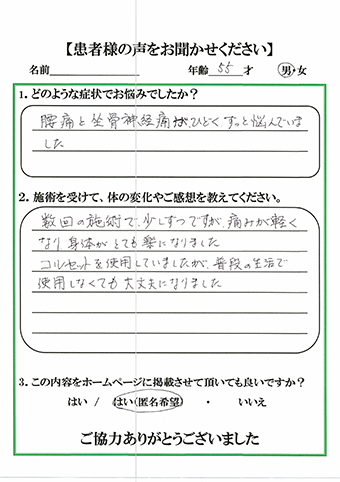 【患者様の声をお聞かせください】
名前 年齢 55 才 男・女
1. どのような症状でお悩みでしたか?
腰痛と坐骨神経痛がひどく、ずっと悩んでいま
した
2. 施術を受けて、体の変化やご感想を教えてください。
数回の施術で、少しずつですが、痛みが軽く
なり身体がとても楽になりました
コルセットを使用していましたが、普段の生活で
使用しなくても大丈夫になりました
3. この内容をホームページに掲載させて頂いても良いですか?
はい / はい(匿名希望) ・ いいえ
ご協力ありがとうございました